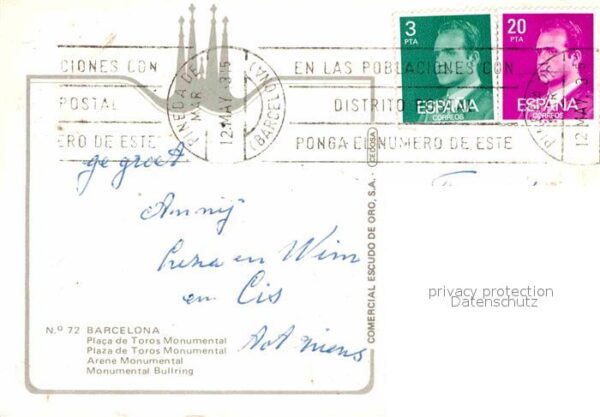 3
PTA
20
PTA
ESPAÑA
CORREOS
ESPAÑA
CORREOS
CIONES CON
EN LAS POBLACIONES CON
POSTAL
DISTRITO POSTAL
ERO DE ESTE
PONGA EL NUMERO DE ESTE
PINEDA DE MAR
12 MAY 8
(BARCELONA)
12 MAY 8
gegroet
Annij
en Wim
en Cis
COMERCIAL ESCUDO DE ORO, S.A.
CEDOSA
privacy protection
Datenschutz
N.º 72 BARCELONA
Plaça de Toros Monumental
Plaza de Toros Monumental
Arene Monumental
Monumental Bullring